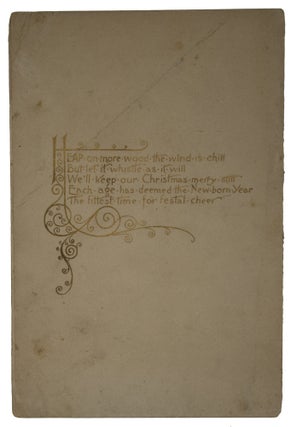 HEAP·on·more·wood·the·wind·is·chill
But·let·it·whistle·as·it·will
We'll·keep·our·Christmas·merry·still
Each·age·has·deemed·the·New·born·Year
The·fittest·time·for·festal·cheer